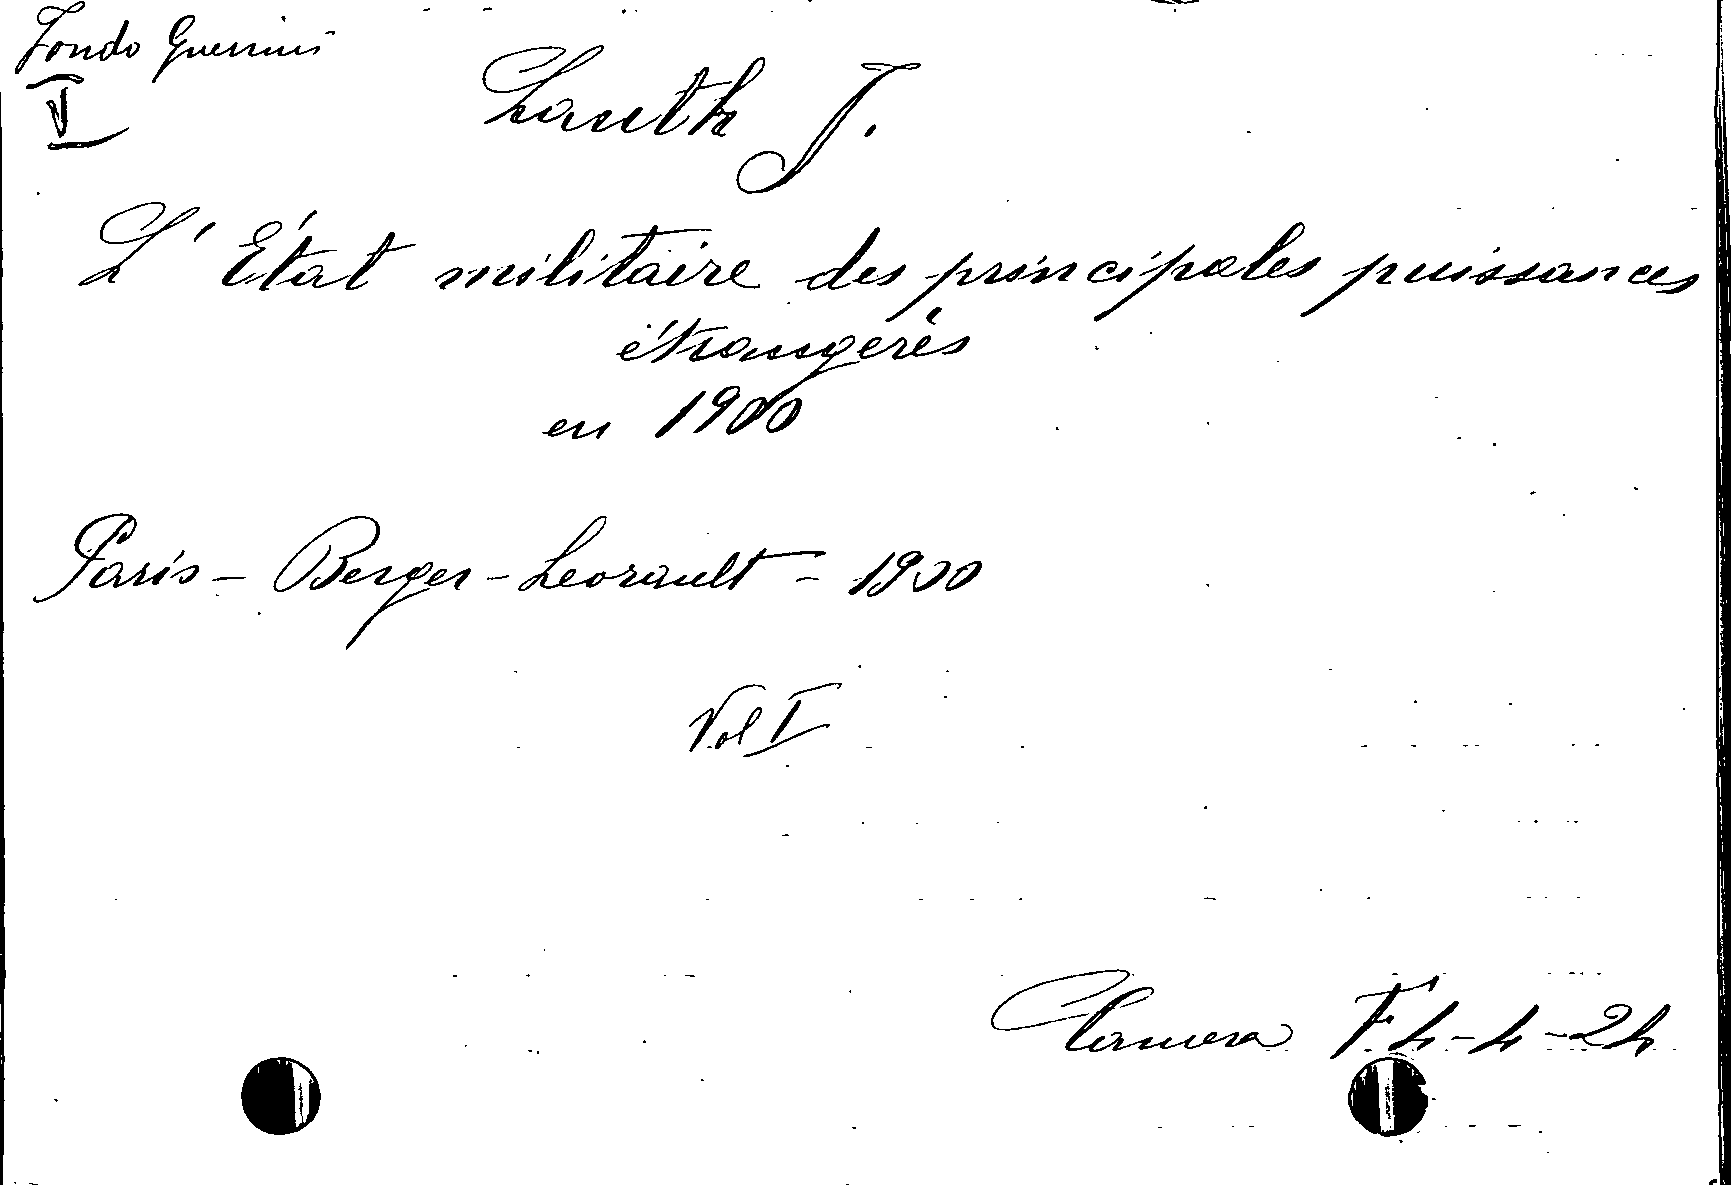 Fondo Guerrini
V
Lauth J.
L'État militaire des principales puissances
étrangerès
en 1900
Paris - Berger - Levrault - 1900
Vol I
Camera F 4-4-24